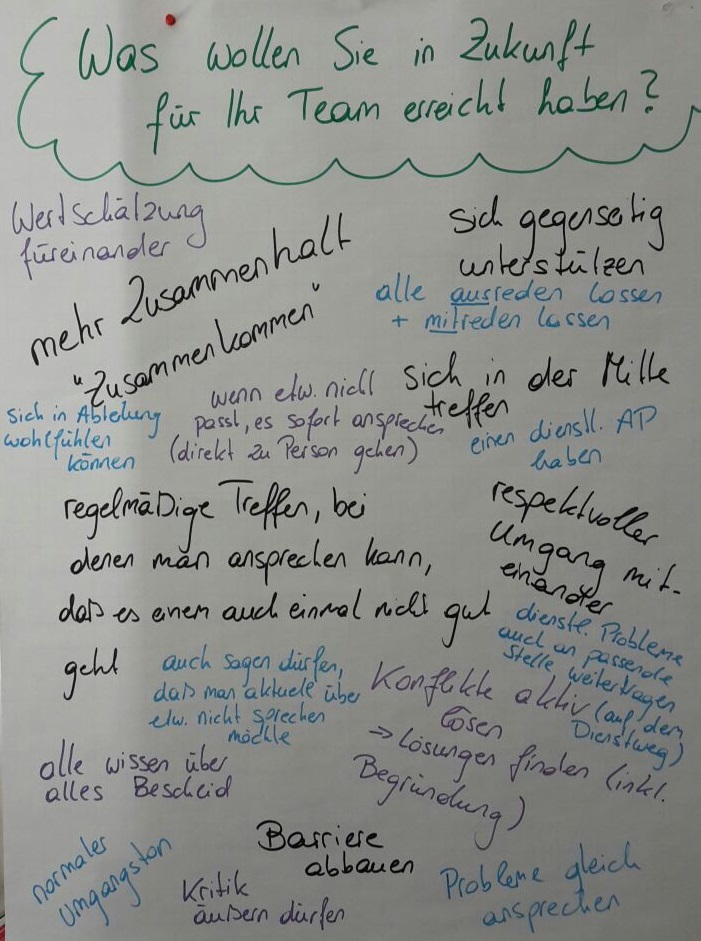 Was wollen Sie in Zukunft
für Ihr Team erreicht haben?
Wertschätzung
füreinander
sich gegenseitig
unterstützen
mehr Zusammenhalt
"Zusammenkommen"
alle ausreden lassen
+ mitreden lassen
sich in der Mitte
treffen
wenn etw. nicht
passt, es sofort ansprechen
(direkt zu Person gehen)
sich in Abteilung
wohlfühlen
können
einen dienstl. AP
haben
regelmäßige Treffen, bei
denen man ansprechen kann,
daß es einem auch einmal nicht gut
geht
respektvoller
Umgang mit-
einander
dienstl. Probleme
auch an passende
Stelle weitertragen
(auf dem
Dienstweg)
auch sagen dürfen,
daß man aktuell über
etw. nicht sprechen
möchte
Konflikte aktiv
lösen
→ Lösungen finden (inkl.
Begründung)
alle wissen über
alles Bescheid
Barriere
abbauen
normaler
Umgangston
Kritik
äußern dürfen
Probleme gleich
ansprechen